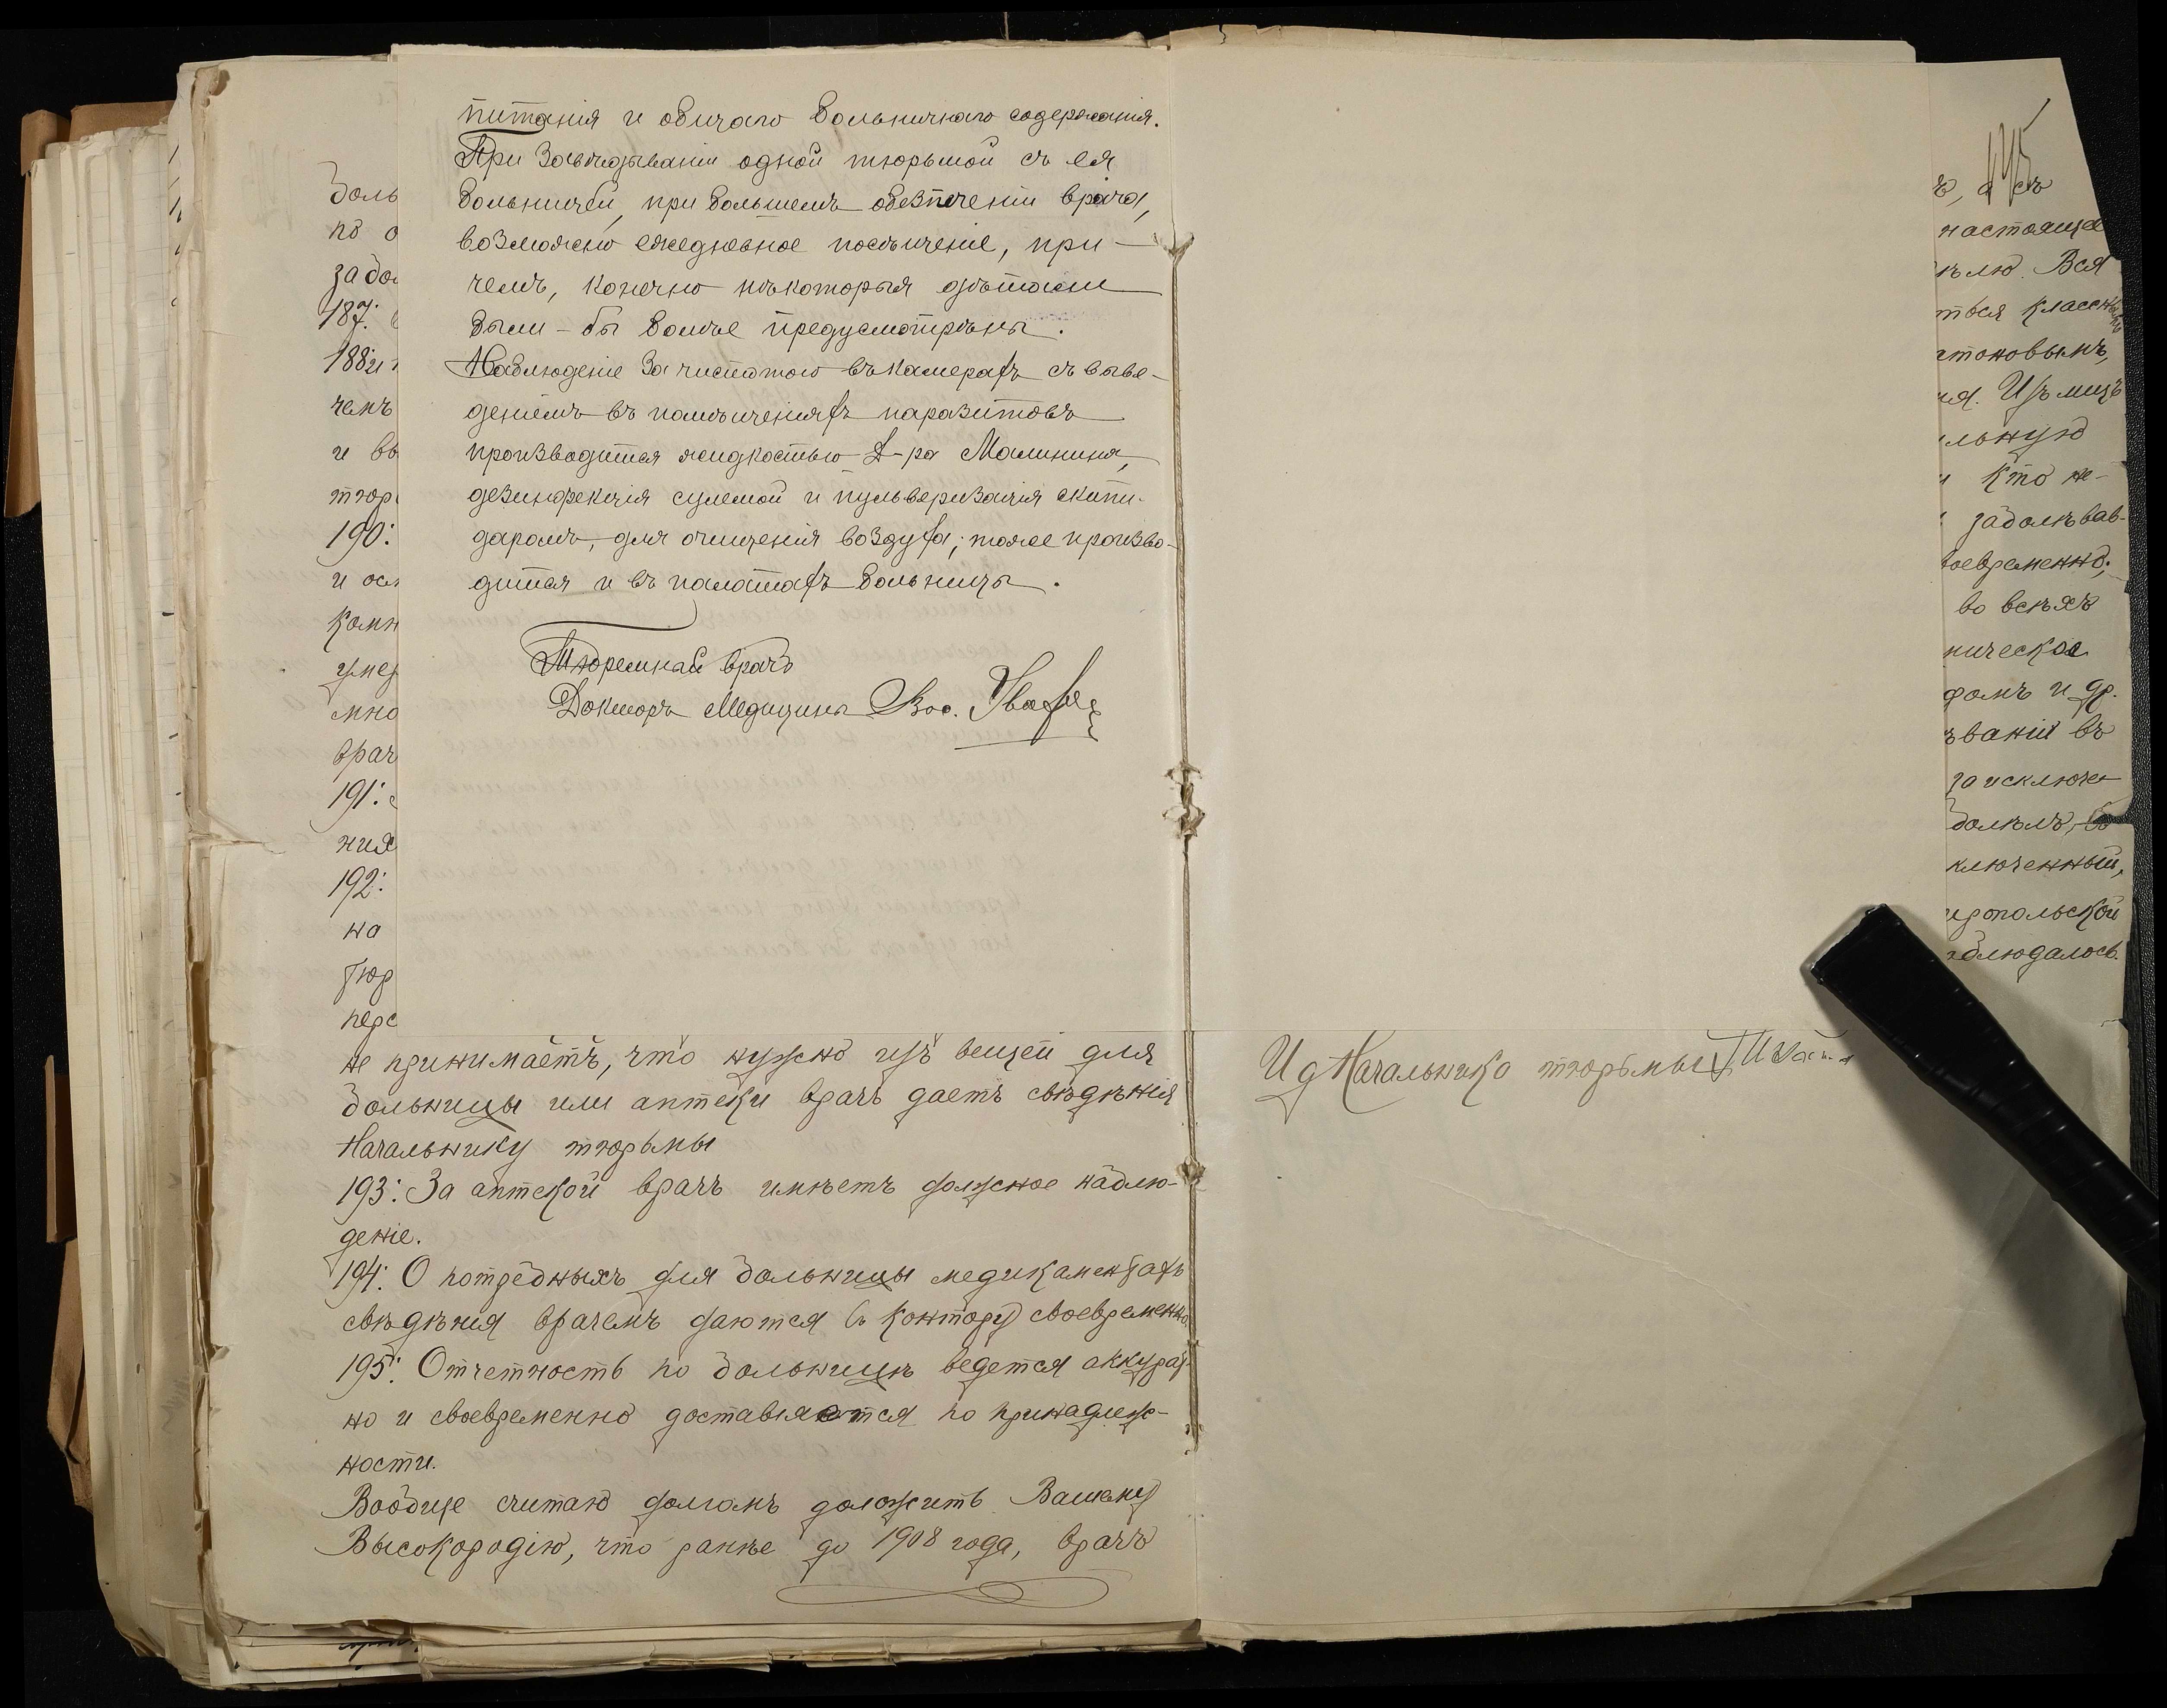 питанія и общаго больничнаго содержанія.
При завѣдываніи одной тюрьмой съ ея
больницей, при большемъ обезпеченіи врача,
возможно ежедневное посѣщеніе, при-
чемъ, конечно нѣкоторыя детали
были-бы болѣе предусмотрѣны.
Наблюденіе за чистотою въ камерахъ съ выве-
деніемъ въ помѣщеніяхъ паразитовъ
производится жидкостью Д-ра Малинина,
дезинфекція сулемой и пульверизація скипи-
даромъ, для очищенія воздуха; тоже произво-
дится и въ палатахъ больницы.
Тюремный врачъ
Докторъ Медицины
боль
по о
187:
188:
чемъ
и вы
тюр
190:
и ос
комн
умер
мно
врач
191:
ния
192:
на
тюр
перс
не принимаетъ, что нужно изъ вещей для
больницы или аптеки врачъ даетъ свѣдѣнія
Начальнику тюрьмы
193: За аптекой врачъ имѣетъ должное наблю-
деніе.
194: О потребныхъ для больницы медикаментахъ
свѣдѣнія врачемъ даются въ контору своевременно.
195: Отчетность по больницѣ ведется аккурат-
но и своевременно доставляется по принадлеж-
ности.
Вообще считаю долгомъ доложить Вашему
Высокородію, что ранѣе до 1908 года, врачъ
ъ, а съ
настояще
ѣлю. Вся
ться
стоковымъ,
ия. Изъ лицъ
льную
и кто не-
заболѣвав-
воевременно;
во всѣхъ
ническое
фомъ и др.
ѣваній въ
за исключе-
болѣлъ,
ключенный,
опольской
аблюдалось.
И д Начальника тюрьмы